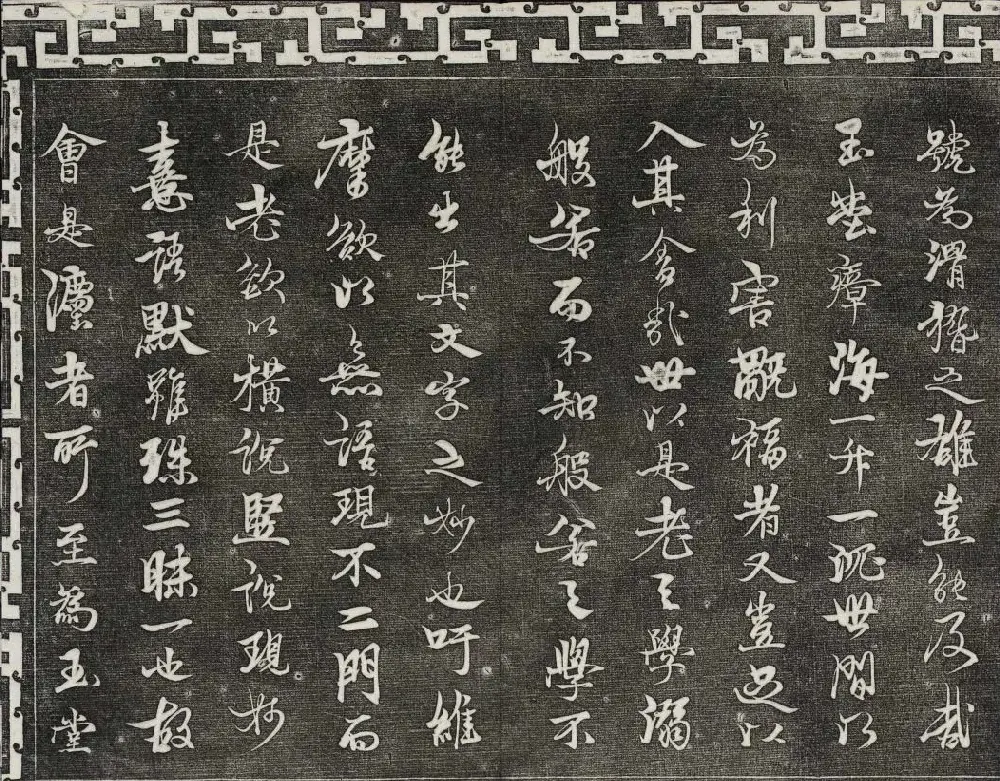 號為渭獵之雄豈能及哉
玉堂瘴海一升一沉世間以
為利害覶福者又豈足以
入其舍哉世以是老之學溺
般若而不知般若之學不
能出其文字之妙也吁維
摩欲以無語現不二門而
是老欲以橫說竪說現妙
憙語默雖殊三昧一也故
會是濃者所至為玉堂